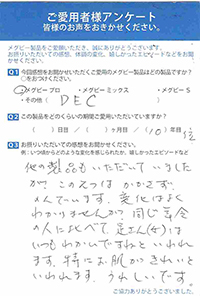 ご愛用者様アンケート
皆様のお声をおきかせください。
メグビー製品をご愛顧いただき、誠にありがとうございます。
お使いいただいての感想、体調の変化、嬉しかったエピソードなどを
お聞かせください。
Q1 今回感想をお聞かせいただくご愛用のメグビー製品はどの製品ですか？
○をおつけください。
・メグビー プロ ・メグビー ミックス ・メグビー S
・その他（ DEC ）
Q2 この製品をどのくらいの期間ご愛用いただいていますか？
（ ）日目／（ ）ヶ月目／（10）年目 位
Q3 お摂りいただいての感想をお聞かせください。
例：いつ頃からどのような変化を感じられたか、嬉しかったエピソードなど
他の製品もいただいていました
が、この3つは かかさず、
のんでいます。変化はよく
わかりませんが、同じ年令
の人に比べて、足エ人(女)は
いつもわかいですねといわれ
ます。特にお肌がきれいと
いわれます。うれしいです。
ご協力ありがとうございました。